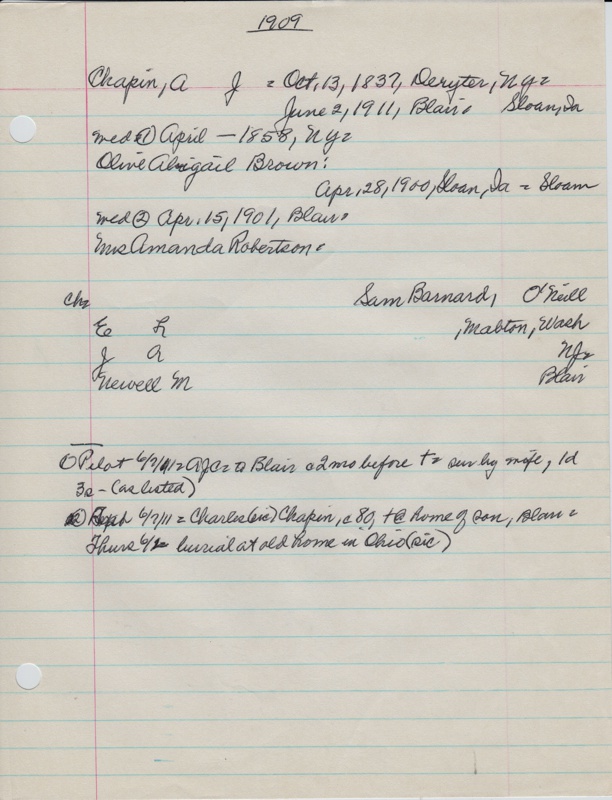 1909
Chapin, A J = Oct, 13, 1837, Deryter, Ny=
June 2, 1911, Blair. Sloan, Ia
med ① April — 1858, Ny=
Olive Abigail Brown:
Apr, 28, 1900, Sloan, Ia = Sloan
med ② Apr. 15, 1901, Blair.
Mrs Amanda Robertson.
Ch= Sam Barnard, O'Neill
E L , Mabton, Wash
J A NJ=
Newell M Blair
① Pilot 6/7/11= AJC= to Blair c2 mo before += sur by wife, 1d
3s - (as listed)
② 6/7/11 = Charles (sic) Chapin, c 80, + @ home of son, Blair =
Thurs 6/2 burial at old home in Ohio (sic)